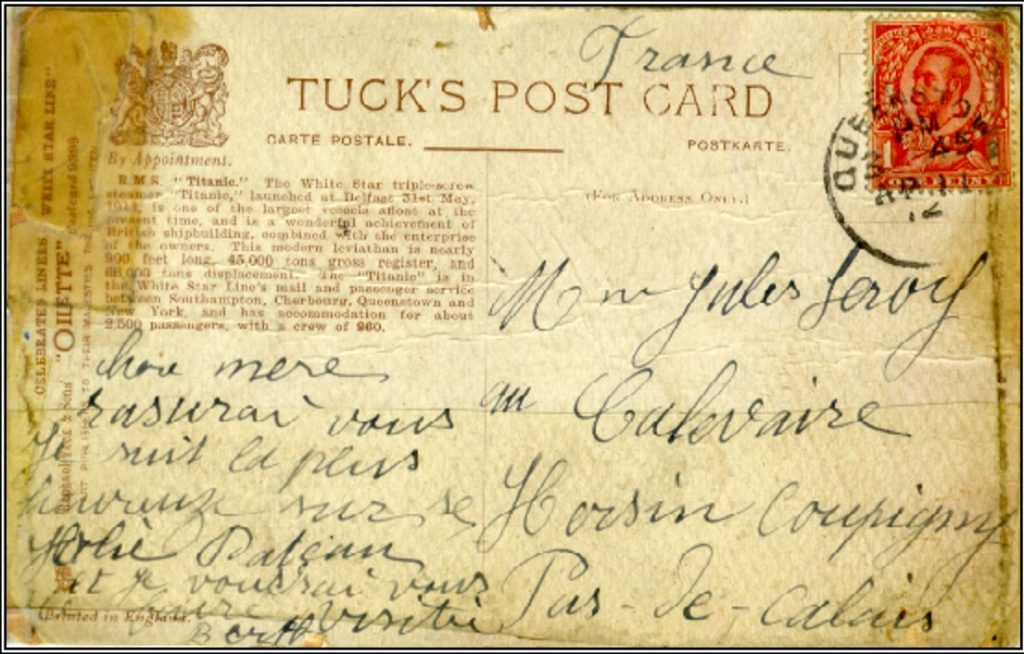 France
TUCK'S POST CARD
CARTE POSTALE.
POSTKARTE.
By Appointment.
(FOR ADDRESS ONLY.)
R.M.S. "Titanic." The White Star triple-screw
steamer "Titanic," launched at Belfast 31st May,
1911, is one of the largest vessels afloat at the
present time, and is a wonderful achievement of
British shipbuilding, combined with the enterprise
of the owners. This modern leviathan is nearly
900 feet long, 45,000 tons gross register, and
66,000 tons displacement. The "Titanic" is in
the White Star Line's mail and passenger service
between Southampton, Cherbourg, Queenstown and
New York, and has accommodation for about
2,500 passengers, with a crew of 860.
CELEBRATED LINERS WHITE STAR LINE"
"OILETTE"
Postcard 9398
TO THEIR MAJESTIES
mere
rasurai vous
Je suit la plus
sur se
et je voudrai vous
visitié
Printed in England.
Jules Leroy
au Calvaire
Hersin Coupigny
Pas-de-Calais
QUEENSTOWN
12
1